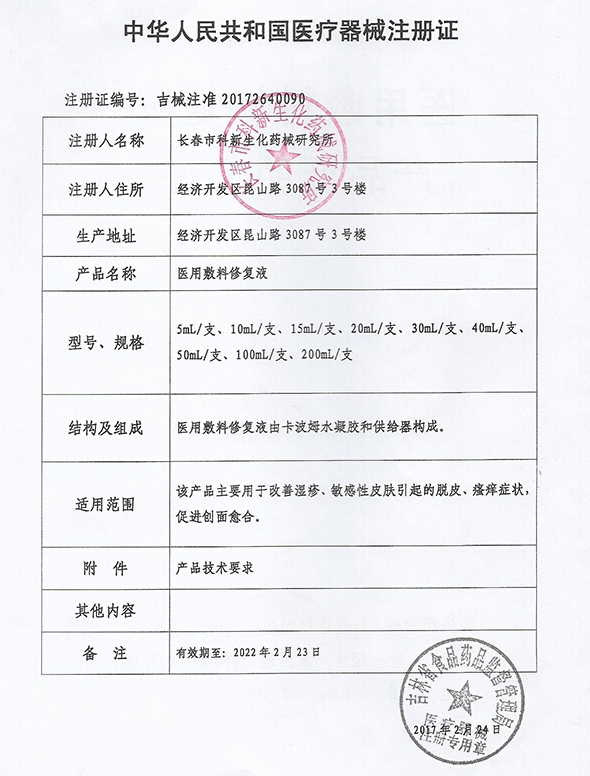 中华人民共和国医疗器械注册证
注册证编号：吉械注准20172640090
注册人名称
长春市科新生化药械研究所
注册人住所
经济开发区昆山路3087号3号楼
生产地址
经济开发区昆山路3087号3号楼
产品名称
医用敷料修复液
型号、规格
5mL/支、10mL/支、15mL/支、20mL/支、30mL/支、40mL/支、
50mL/支、100mL/支、200mL/支
结构及组成
医用敷料修复液由卡波姆水凝胶和供给器构成。
适用范围
该产品主要用于改善湿疹、敏感性皮肤引起的脱皮、瘙痒症状，
促进创面愈合。
附 件
产品技术要求
其他内容
备 注
有效期至：2022年2月23日
长春市科新生化药械研究所
吉林省食品药品监督管理局
2017年2月24日
医疗器械
注册专用章